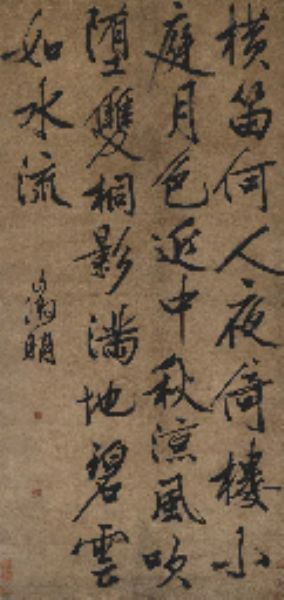 横笛何人夜倚樓小
庭月色近中秋涼風吹
墮雙桐影滿地碧雲
如水流
徵明